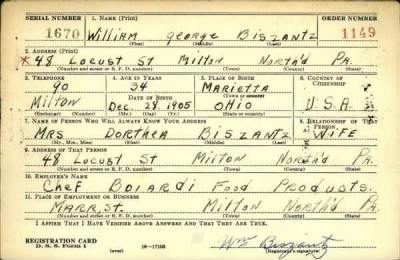 SERIAL NUMBER 1. NAME (Print) ORDER NUMBER
1670 William George Biszantz 1149
(First) (Middle) (Last)
2. ADDRESS (Print)
*48 Locust St Milton North'd Pa.
(Number and street or R. F. D. number) (Town) (County) (State)
3. TELEPHONE 4. AGE IN YEARS 5. PLACE OF BIRTH 6. COUNTRY OF CITIZENSHIP
90 34 Marietta
DATE OF BIRTH (Town or county)
Milton Dec. 28, 1905 Ohio U.S.A.
(Exchange) (Number) (Mo.) (Day) (Yr.) (State or country)
7. NAME OF PERSON WHO WILL ALWAYS KNOW YOUR ADDRESS 8. RELATIONSHIP OF THAT PERSON
Mrs Dorthea Biszantz Wife
(Mr., Mrs., Miss) (First) (Middle) (Last)
9. ADDRESS OF THAT PERSON
48 Locust St Milton North'd Pa.
(Number and street or R. F. D. number) (Town) (County) (State)
10. EMPLOYER'S NAME
Chef Boiardi Food Products.
11. PLACE OF EMPLOYMENT OR BUSINESS
Marr. St. Milton North'd Pa.
(Number and street or R. F. D. number) (Town) (County) (State)
I AFFIRM THAT I HAVE VERIFIED ABOVE ANSWERS AND THAT THEY ARE TRUE.
REGISTRATION CARD
D. S. S. Form 1 (over) 16-17105 Wm Biszantz
(Registrant's signature)